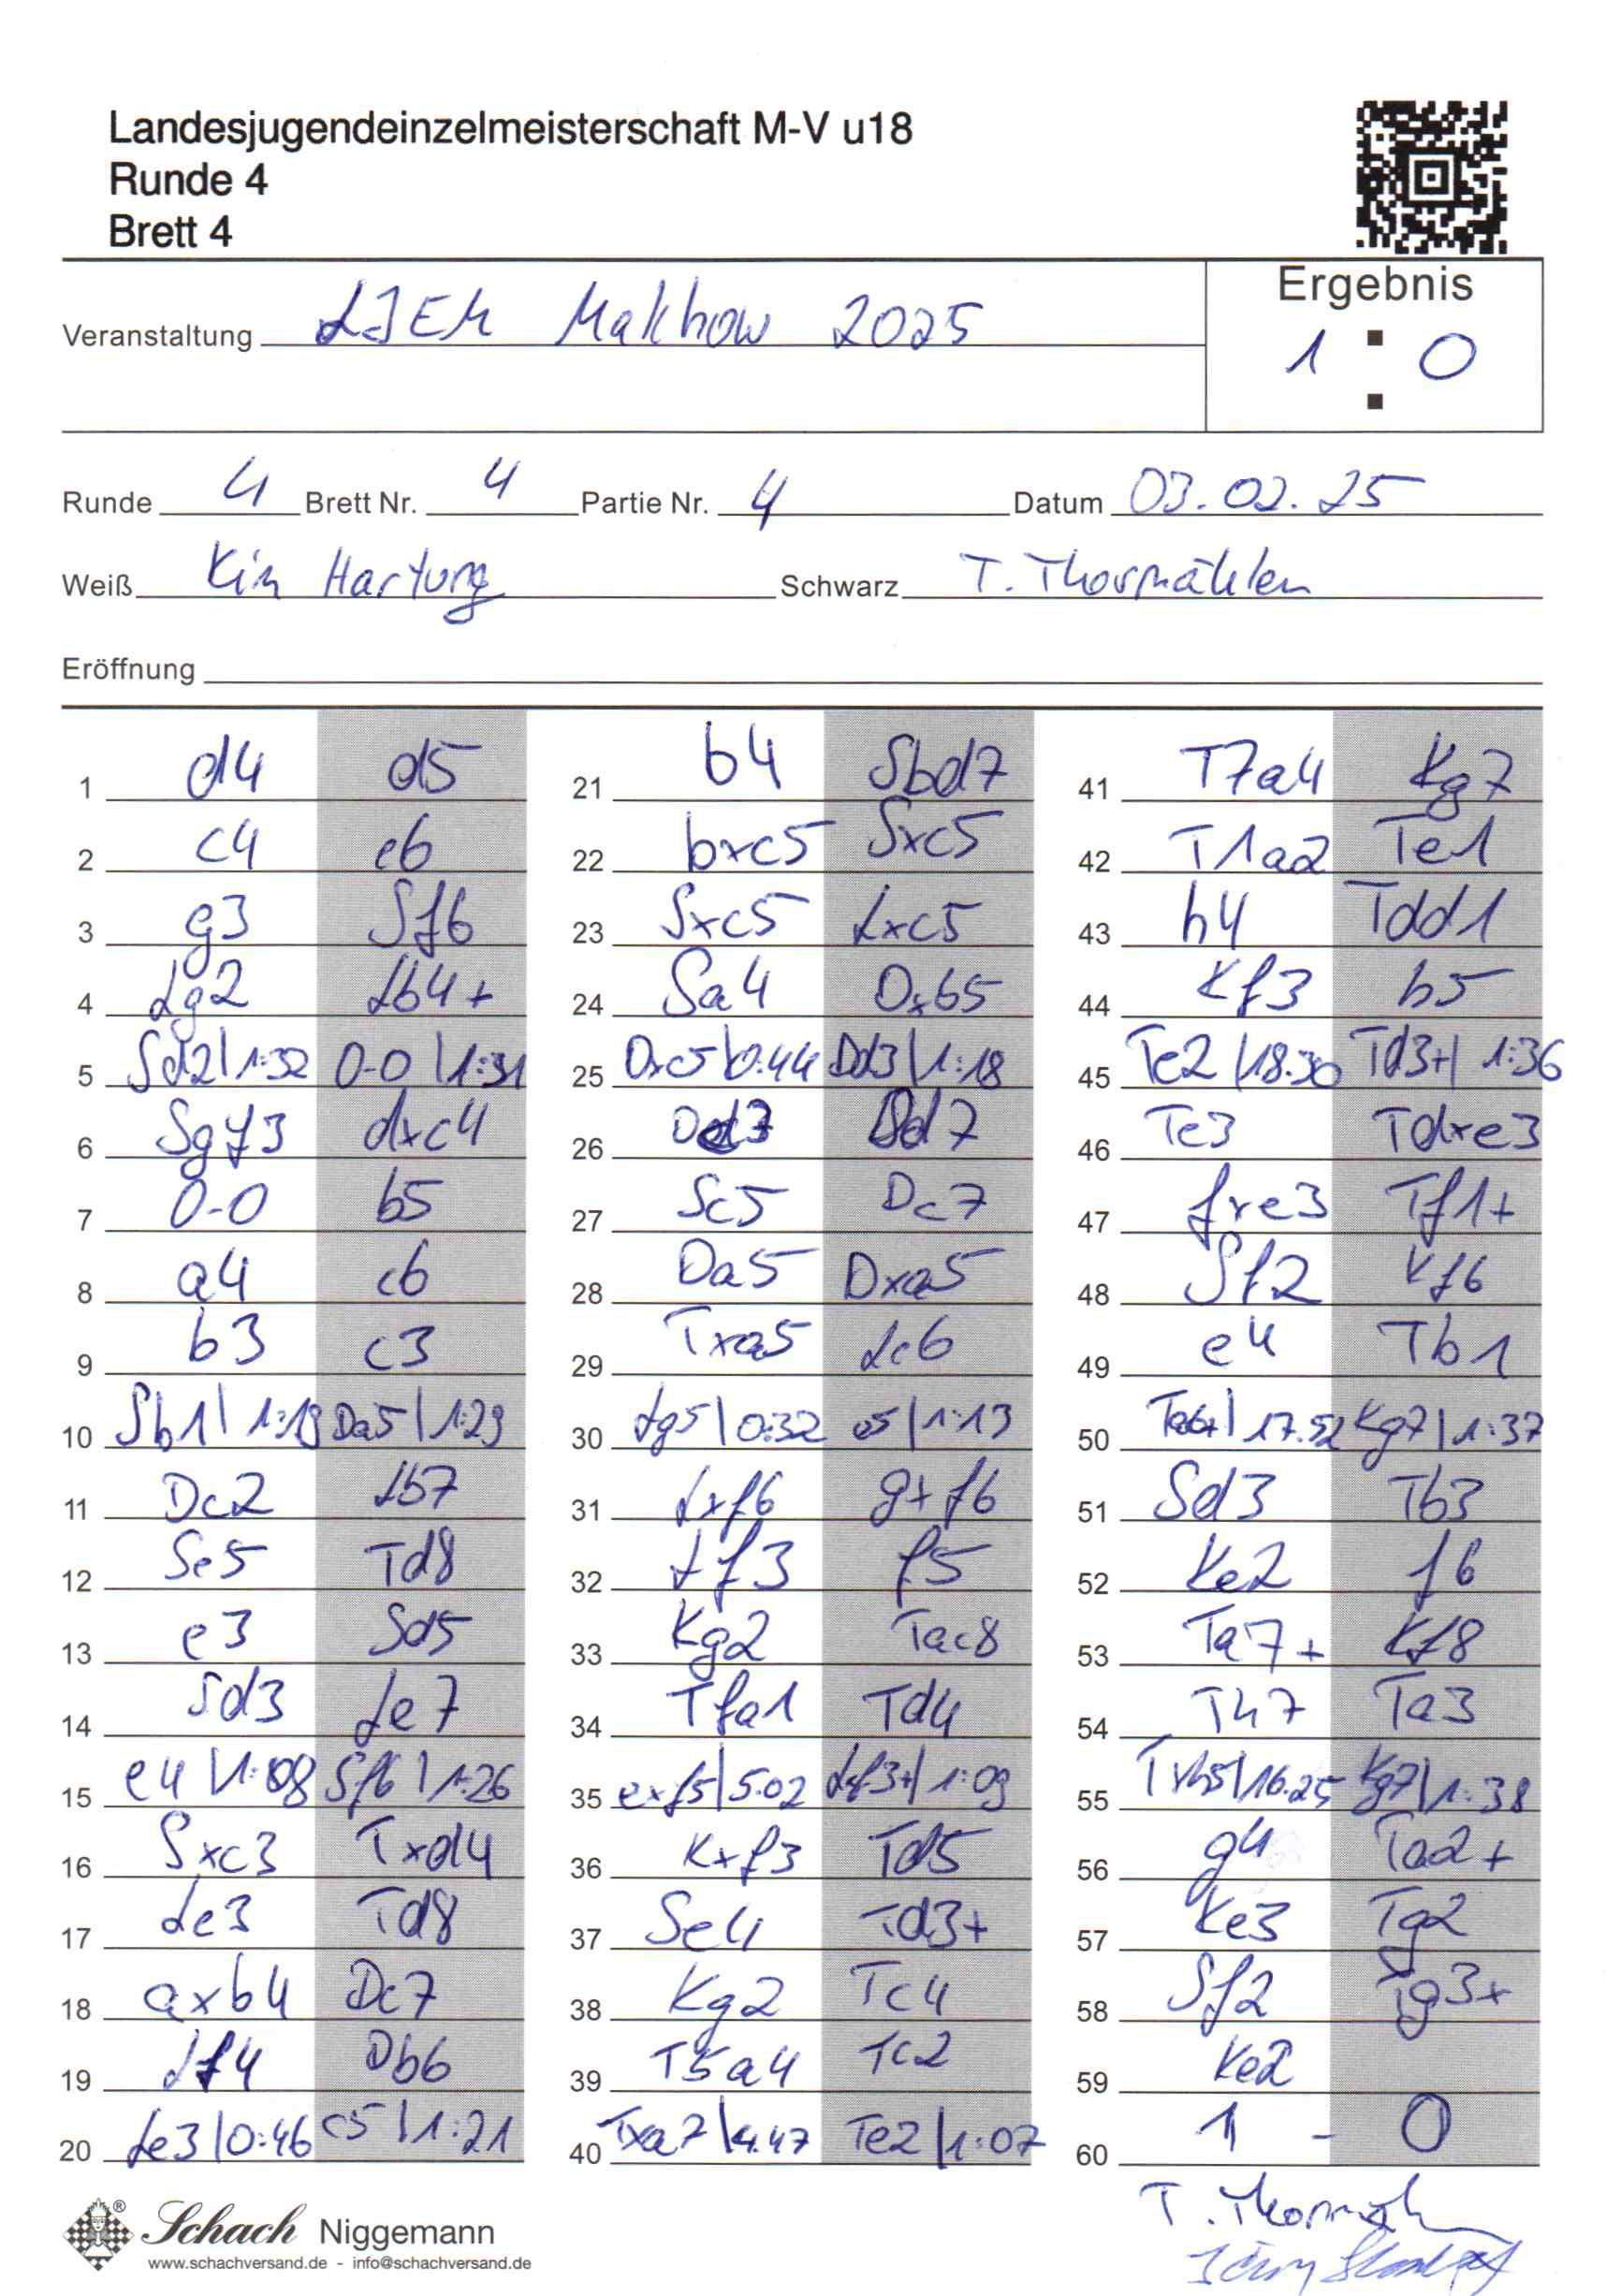 Landesjugendeinzelmeisterschaft M-V u18
Runde 4
Brett 4
Ergebnis
Veranstaltung LJEM Malchow 2025
1 : 0
Runde 4 Brett Nr. 4 Partie Nr. 4 Datum 03.02.25
Weiß Kim Hartung Schwarz T. Thormählen
Eröffnung
1 d4 d5
2 c4 e6
3 g3 Sf6
4 Lg2 Lb4+
5 Sd2|1:32 0-0|1:31
6 Sgf3 dxc4
7 0-0 b5
8 a4 c6
9 b3 c3
10 Sb1|1:19 Da5|1:29
11 Dc2 Lb7
12 Se5 Td8
13 e3 Sd5
14 Sd3 Le7
15 e4|1:08 Sf6|1:26
16 Sxc3 Txd4
17 Le3 Td8
18 axb4 Dc7
19 Lf4 Db6
20 Le3|0:46 c5|1:21
21 b4 Sbd7
22 bxc5 Sxc5
23 Sxc5 Lxc5
24 Sa4 Dxb5
25 Dxc5|0:44 Dd3|1:18
26 Dd7
27 Sc5 Dc7
28 Da5 Dxa5
29 Txa5 Lc6
30 Lg5|0:32 e5|1:13
31 Lxf6 gxf6
32 Lf3 f5
33 Kg2 Tac8
34 Tfa1 Td4
35 exf5|5.02 Lxf3+|1:09
36 Kxf3 Td5
37 Se4 Td3+
38 Kg2 Tc4
39 T5a4 Tc2
40 Txa7|4.47 Te2|1:07
41 T7a4 Kg7
42 T1a2 Te1
43 h4 Tdd1
44 Kf3 h5
45 Te2|18.30 Td3+|1:36
46 Te3 Tdxe3
47 fxe3 Tf1+
48 Sf2 Kf6
49 e4 Tb1
50 Ta6+|17.52 Kg7|1:37
51 Sd3 Tb3
52 Ke2 f6
53 Ta7+ Kf8
54 Th7 Ta3
55 Txh5|16.25 Kg7|1:38
56 g4 Ta2+
57 Ke3 Tg2
58 Sf2 Tg3+
59 Ke2
60 1 - 0
Schach Niggemann
www.schachversand.de - info@schachversand.de